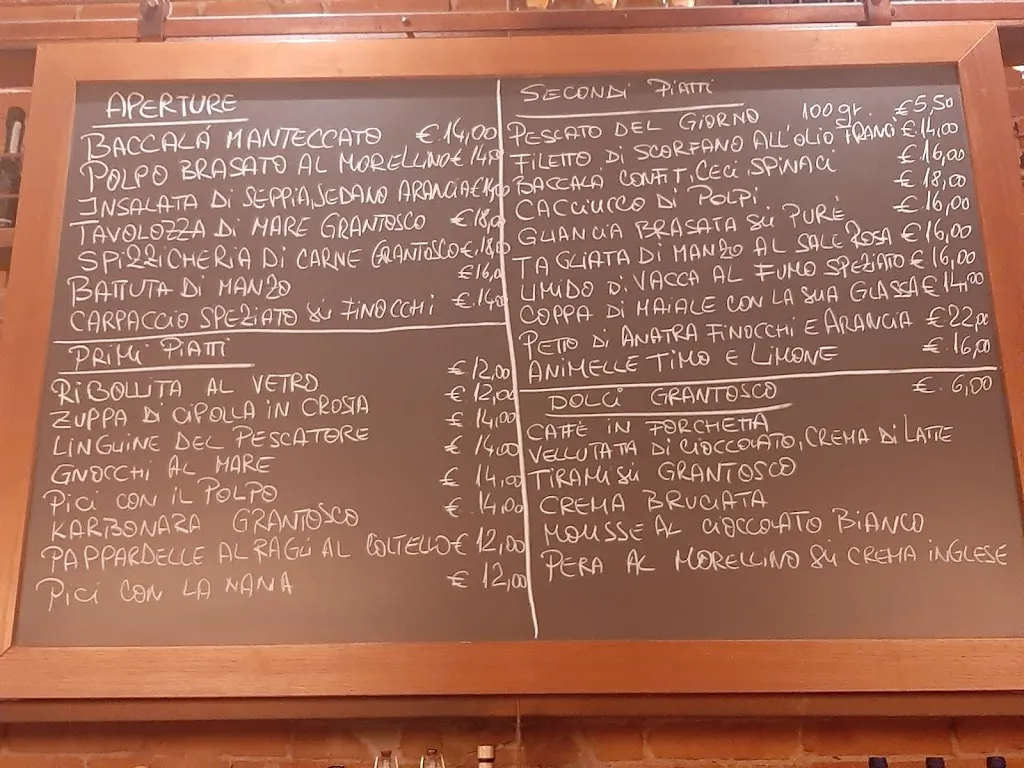 APERTURE
BACCALÁ MANTECCATO € 14,00
POLPO BRASATO AL MORELLINO € 14,00
INSALATA DI SEPPIA, SEDANO ARANCIA € 14,00
TAVOLOZZA DI MARE GRANTOSCO € 18,00
SPIZZICHERIA DI CARNE GRANTOSCO € 18,00
BATTUTA DI MANZO € 16,00
CARPACCIO SPEZIATO SU FINOCCHI €. 14,00
PRIMI PIATTI
RIBOLLITA AL VETRO € 12,00
ZUPPA DI CIPOLLA IN CROSTA € 12,00
LINGUINE DEL PESCATORE € 14,00
GNOCCHI AL MARE € 14,00
PICI CON IL POLPO € 14,00
KARBONARA GRANTOSCO €. 14,00
PAPPARDELLE AL RAGÙ AL COLTELLO € 12,00
PICI CON LA NANA € 12,00
SECONDI PIATTI
PESCATO DEL GIORNO 100 gr. € 5,50
FILETTO DI SCORFANO ALL'OLIO TRANCI € 14,00
BACCALÀ CONFIT, CECI, SPINACI € 16,00
CACCIUCCO DI POLPI € 18,00
GUANCIA BRASATA SU PURÈ €. 16,00
TAGLIATA DI MANZO AL SALE ROSA € 16,00
UMIDO DI VACCA AL FUMO SPEZIATO € 16,00
COPPA DI MAIALE CON LA SUA GLASSA € 14,00
PETTO DI ANATRA FINOCCHI E ARANCIA € 22,00
ANIMELLE TIMO E LIMONE €. 16,00
DOLCI GRANTOSCO €. 6,00
CAFFÈ IN FORCHETTA
VELLUTATA DI CIOCCOLATO, CREMA DI LATTE
TIRAMISÙ GRANTOSCO
CREMA BRUCIATA
MOUSSE AL CIOCCOLATO BIANCO
PERA AL MORELLINO SU CREMA INGLESE